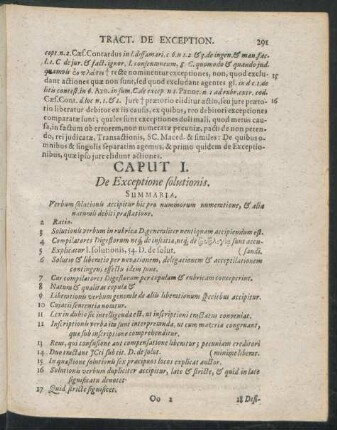 TRACT. DE EXCEPTION. 291
cept. n.2. Cæs. Contardus in l. diffamari. c. 6. n.1.2. & 5. de ingen. & man. fac.
l.1. C. de jur. & fact. ignor. l. consentaneum, 5. C. quomodo & quando jud.
rectè nominentur exceptiones, non, quod exclu- 15
dant actiones quæ non sunt, sed quod excludant agentes. gl. in
litis contest. in 6. Azo. in sum. C. de except. n.1.
Cæs. Cont. d. loc n. 1. & 2. Jure prætorio ceditur actio, seu jure præto- 16
rio liberatur debitor ex iis causis, ex quibus, reo debitori exceptiones
comparatæ sunt; quales sunt exceptiones doli mali, quod metus cau-
sa, in factum ob errorem, non numeratæ pecuniæ, pacti de non peten-
do, rei judicatæ, Transactionis, SC. Maced. & similes: De quibus o-
mnibus & singulis separatim agemus, & primo quidem de Exceptio-
nibus, quæ ipso jure elidunt actiones.
CAPUT I.
De Exceptione solutionis.
SUMMARIA.
Verbum solutionis accipitur hic pro nummorum numeratione, & alia
naturali debiti præstatione.
2 Ratio.
3 Solutionis verbum in rubrica D. generaliter non tiquam accipiendum est.
4 Compilatores Digestorum neq; de inscitia, neq; de sunt accu-
5 Explicatur l. solutionis, 54. D. de solut. (sandi.
6 Solutio & liberatio per novationem, delegationem & acceptilationem
contingens effectu idem sunt.
7 Cur compilatores Digestorum per copulam & rubricam conceperint.
8 Natura & qualitas copulæ &
9 Liberationis verbum generale de aliis liberationum speciebus accipitur.
10 Cujacii sententia notatur.
11 Lex in dubio sic intelligenda est, ut inscriptioni textus conveniat.
12 Inscriptionis verba ita sunt interpretanda, ut cum materia congruant,
quæ sub inscriptione comprehenditur.
13 Reus, qui confusione aut compensatione liberatur; pecuniam creditori
14 Duo textus JCti sub tit. D. de solut. (minime liberat.
15 In quæstione solutionis sex præcipuos locos explicat auctor.
16 Solutionis verbum dupliciter accipitur, latè & strictè, & quid in lato
significatu denotet.
17 Quid strictè significet.
Oo 2 18 Defi-